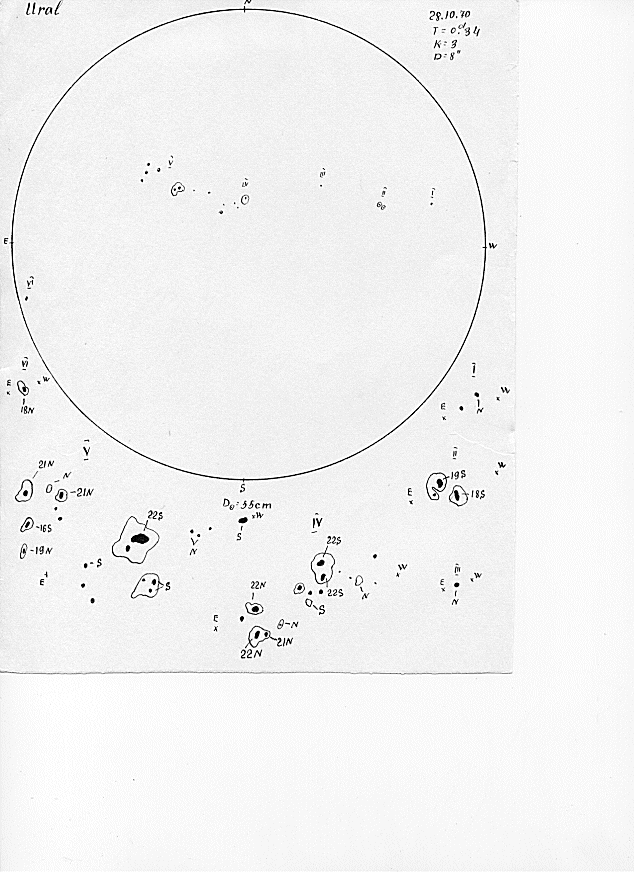 Ural
N
28.10.70
T = 0.ᵈ34
K = 3
D = 8"
V
IV
III
II
I
E
W
VI
VI
E
W
x
x
18N
I
W
E
x
x
N
V
21N
N
21N
16S
19N
E
S
22S
S
S
V
N
D☉ = 55cm
xW
S
II
19S
W
x
E
x
18S
IV
22S
22S
S
W
x
N
22N
E
x
N
21N
22N
III
E
x
W
x
N